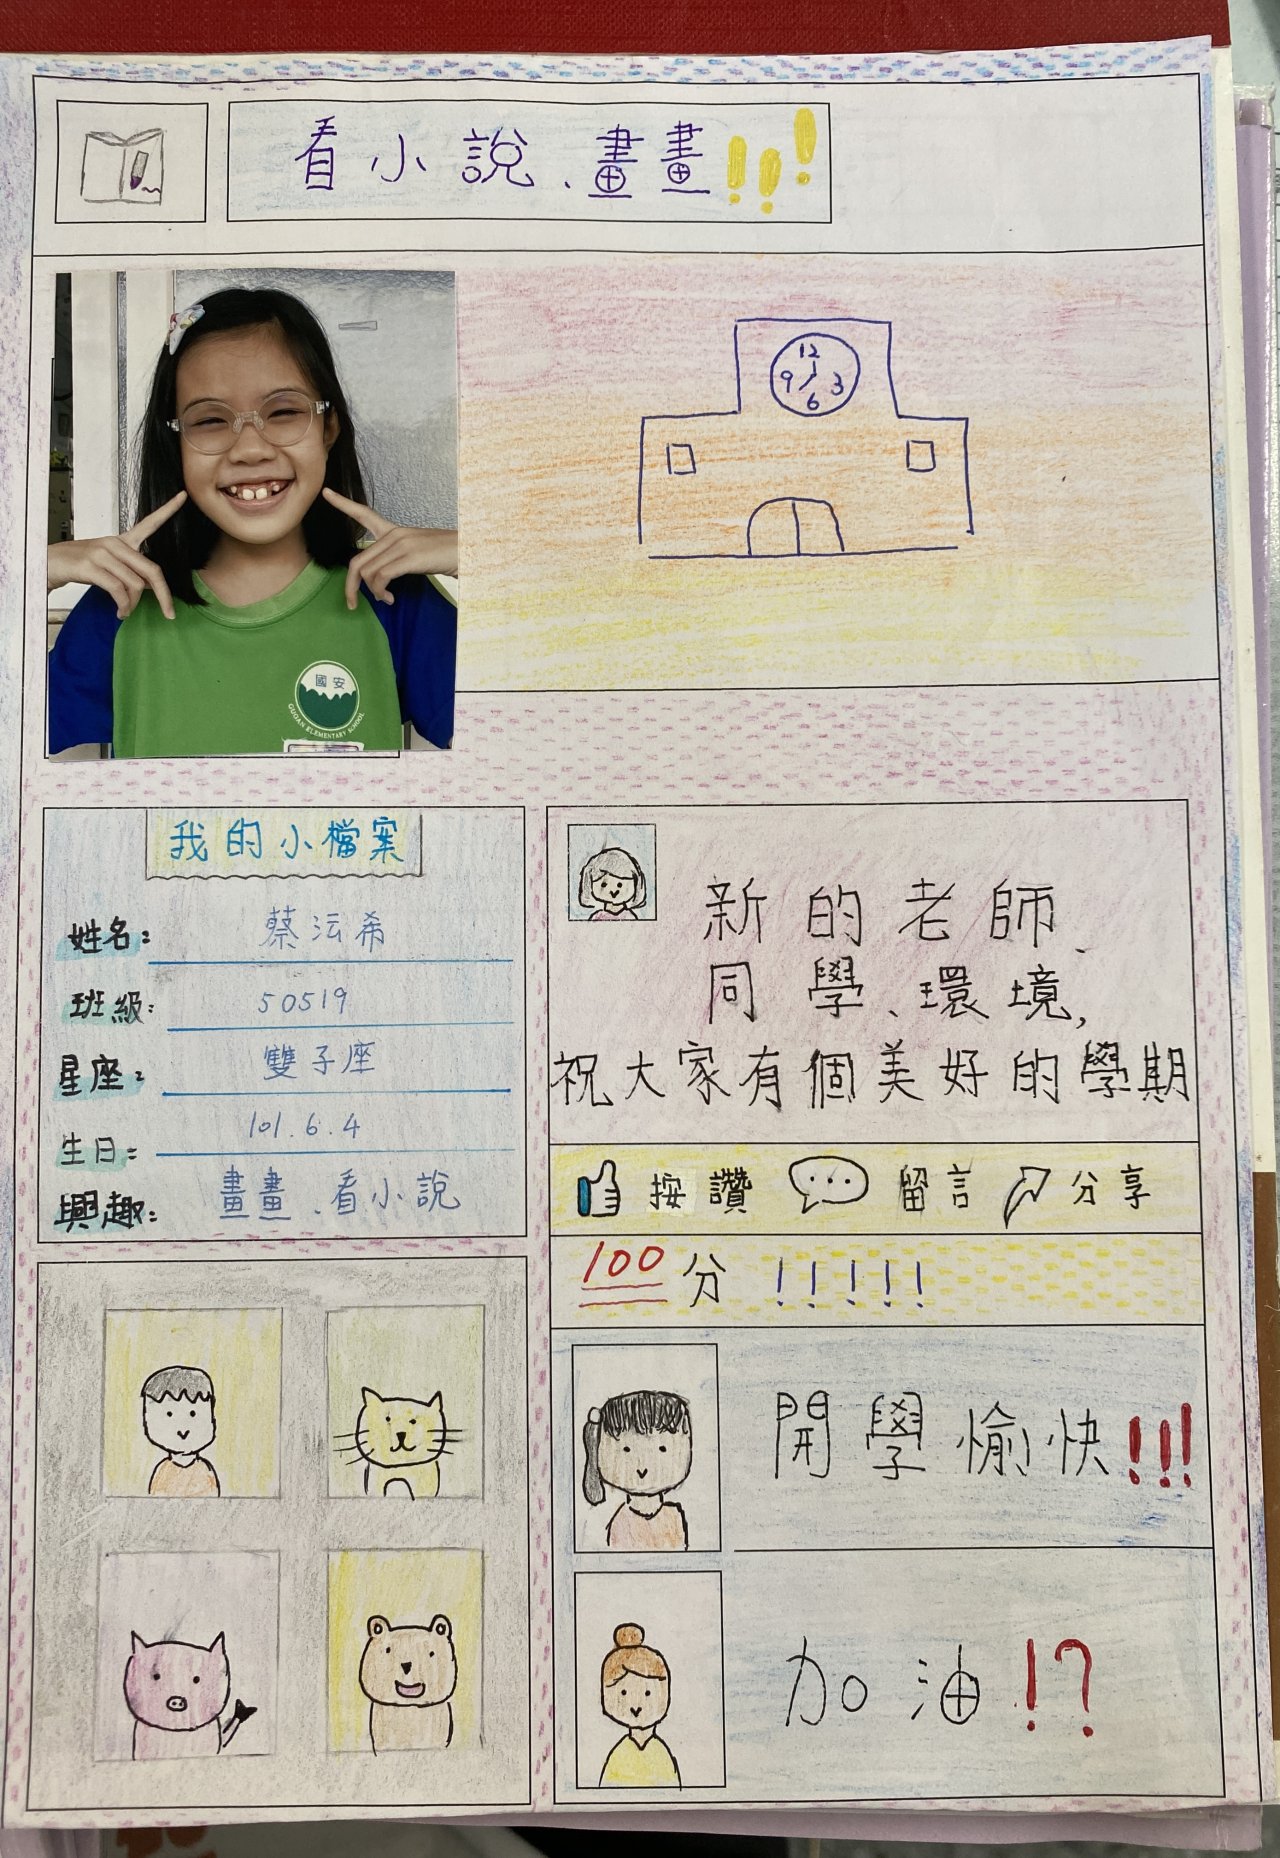 看小說、畫畫!!!
12
9 3
6
國安
GUOAN ELEMENTARY SCHOOL
我的小檔案
姓名: 蔡沄希
班級: 50519
星座: 雙子座
生日: 101.6.4
興趣: 畫畫、看小說
新的老師、
同學、環境,
祝大家有個美好的學期
按讚 留言 分享
100分!!!!!
開學愉快!!!
加油!?